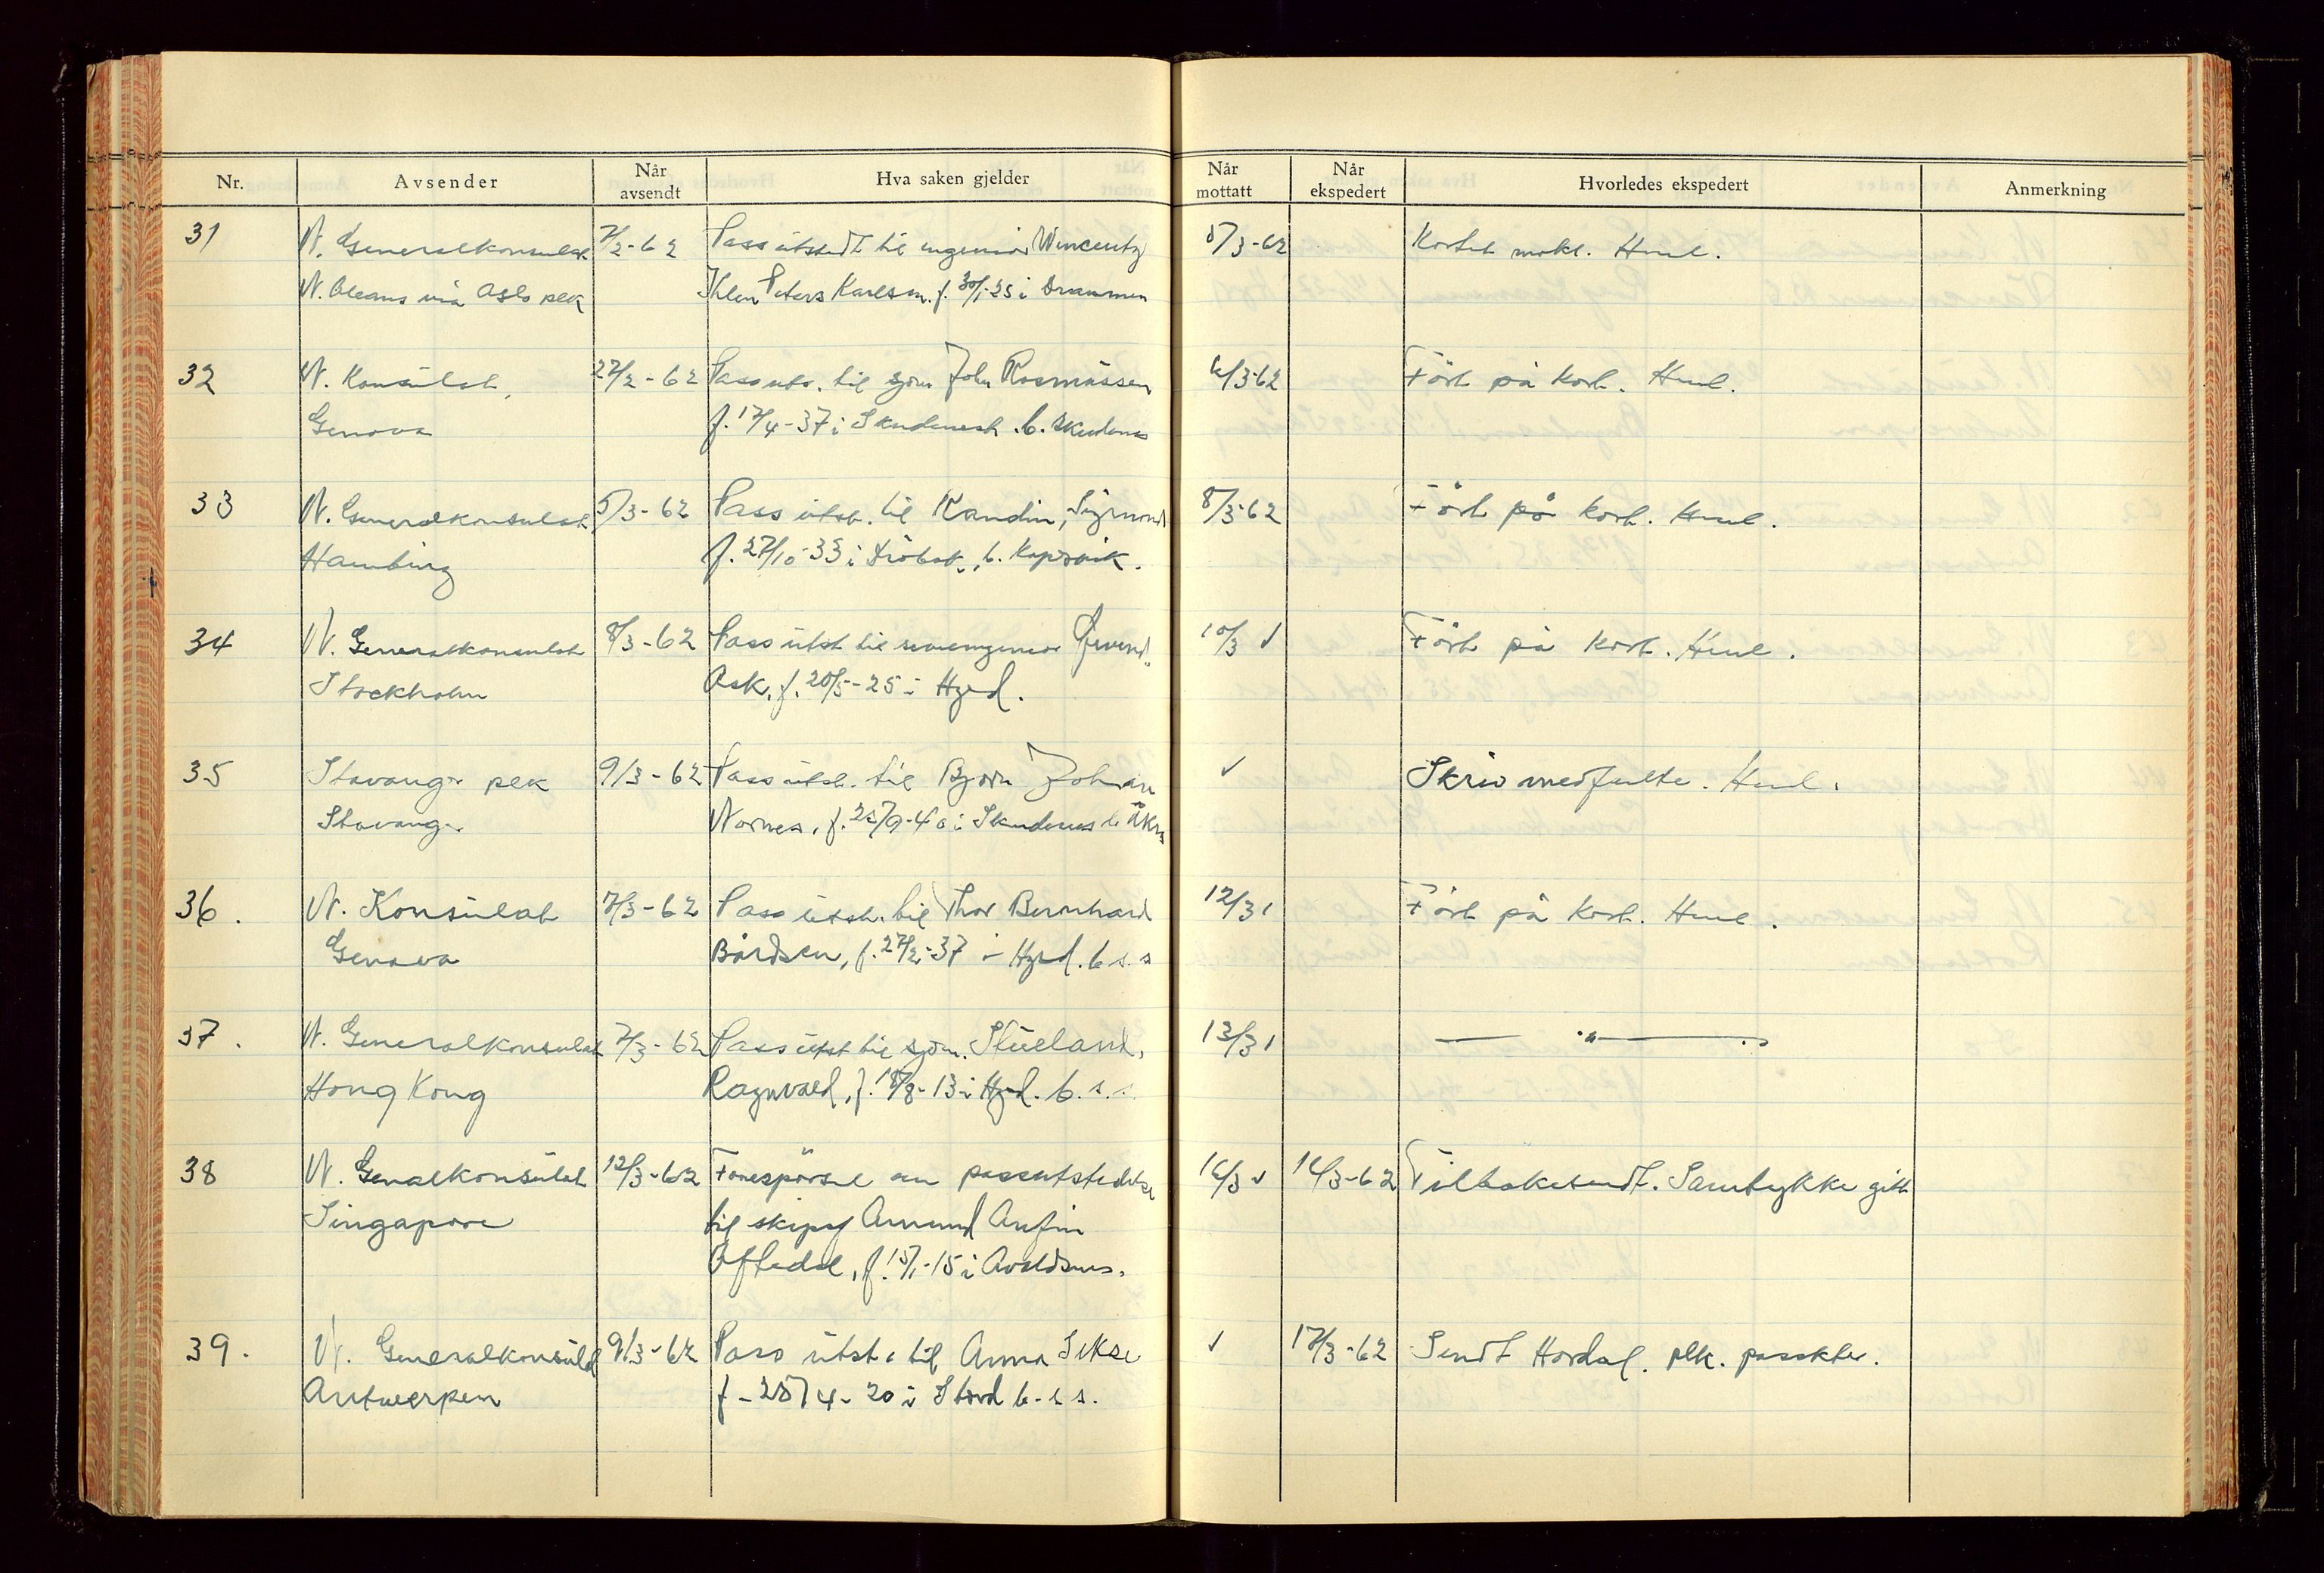 Nr. Avsender Når avsendt Hva saken gjelder Når mottatt Når ekspedert Hvorledes ekspedert Anmerkning
31 N. Generalkonsulat 7/2-62 Pass utstedt til ingeniør Wincentz 5/3-62 Kortet Hml.
N. Oleans via Oslo pkk Ihlen Peters Karlsen. f. 30/1-25 i Drammen
32 N. Konsulat, 27/2-62 Pass uts. til sjøm John Rasmussen 6/3-62 Ført på kort. Hml.
Genova f. 17/4-37 i Skudenesh. b. Skudenes
33 N. Generalkonsulat 5/3-62 Pass utst. til Kandin, Sigmund 8/3-62 Ført på kort. Hml.
Hamburg f. 27/10-33 i b. Kopervik.
34 N. Generalkonsulat 8/3-62 Pass utst til Øivind 10/3 ✓ Ført på kort. Hml.
Stockholm Ask, f. 20/5-25 i Hgsd.
35 Stavanger pkk 9/3-62 Pass utst. til Bjørn Johan ✓ Skriv medfulte. Hml.
Stavanger Nornes, f. /9-40 i Skudenes b Åkra
36. N. Konsulat 7/3-62 Pass utst. til Thor Bernhard 12/3 Ført på kort. Hml.
Genova Bårdsen, f. 27/2-37 i Hgsd. b s. s
37. N. Generalkonsulat 7/3-62 Pass utst til sjøm. Stueland, 13/3 — " —
Hong Kong Ragnvald, f. 18/8-13 i Hgsd. b. s. s.
38 N. Genalkonsulat 12/3-62 Forespørsel om passutstedelse 16/3 ✓ 16/3-62 Tilbakesendt. Samtykke gitt
Singapore til skipsf Amund Anfin
Oftedal, f. 15/1-15 i Avaldsnes.
39. N. Generalkonsulat 9/3-62 Pass utst. til Anna Sekse ✓ 17/3-62 Sendt Hordal. plk. passkto.
Antwerpen f - 28/4-20 i Stord b. s s.